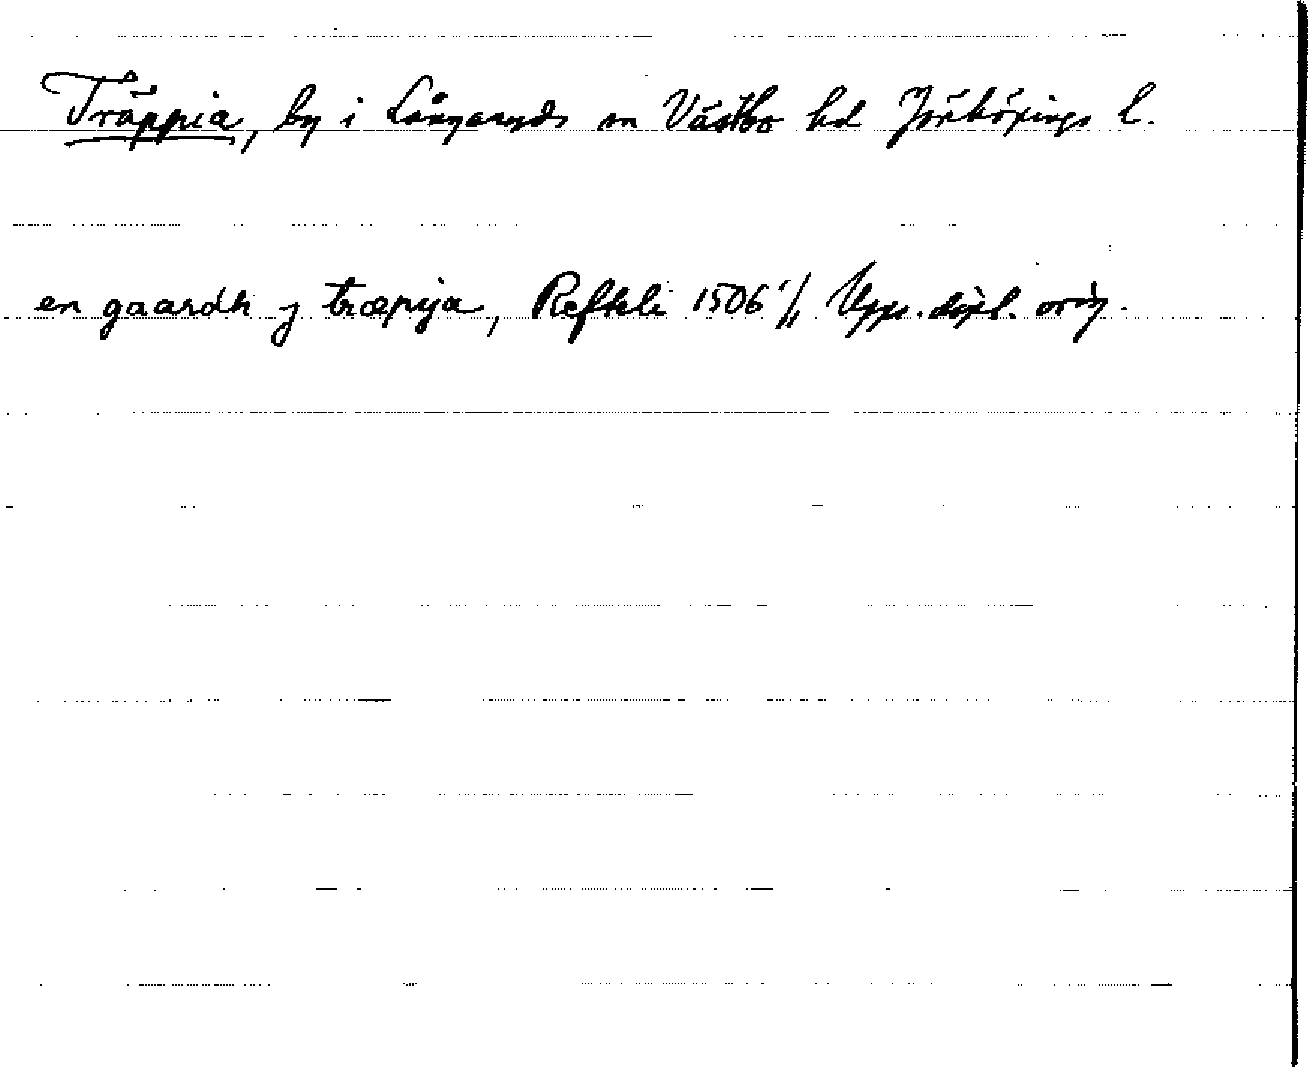 Träppia, by i Långaryds sn Västbo hd Jönköpings l.
en gaardh j træpija, Refftele 1506 1/1 Upps. dipl. orig.